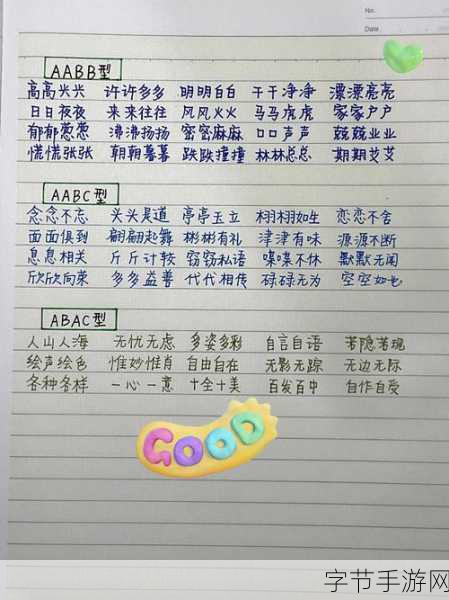 No.
Date
AABB型
高高兴兴 许许多多 明明白白 干干净净 漂漂亮亮
日日夜夜 来来往往 风风火火 马马虎虎 家家户户
郁郁葱葱 沸沸扬扬 密密麻麻 口口声声 兢兢业业
慌慌张张 朝朝暮暮 跌跌撞撞 林林总总 期期艾艾
AABC型
念念不忘 头头是道 亭亭玉立 栩栩如生 恋恋不舍
面面俱到 翩翩起舞 彬彬有礼 津津有味 源源不断
息息相关 斤斤计较 窃窃私语 喋喋不休 默默无闻
欣欣向荣 多多益善 代代相传 碌碌无为 空空如也
ABAC型
人山人海 无忧无虑 多姿多彩 自言自语 若隐若现
绘声绘色 惟妙惟肖 自由自在 无影无踪 无边无际
各种各样 一心一意 十全十美 百发百中 自作自受
GOOD
字节手游网